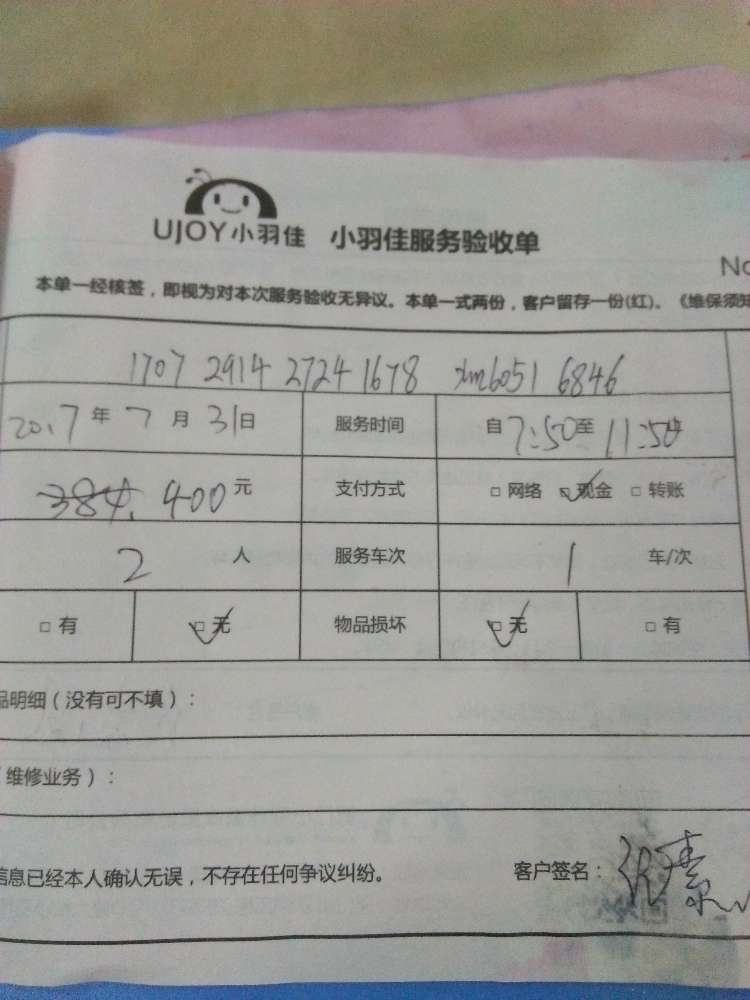 UJOY小羽佳 小羽佳服务验收单
No
本单一经核签，即视为对本次服务验收无异议。本单一式两份，客户留存一份(红)。《维保须知
1707 2914 2724 1678 xm6051 6846
2017年 7月 31日 服务时间 自7:50至11:50
384. 400元 支付方式 □网络 □现金 □转账
2人 服务车次 1车/次
□有 □无 物品损坏 □无 □有
品明细（没有可不填）：
维修业务）：
信息已经本人确认无误，不存在任何争议纠纷。 客户签名：